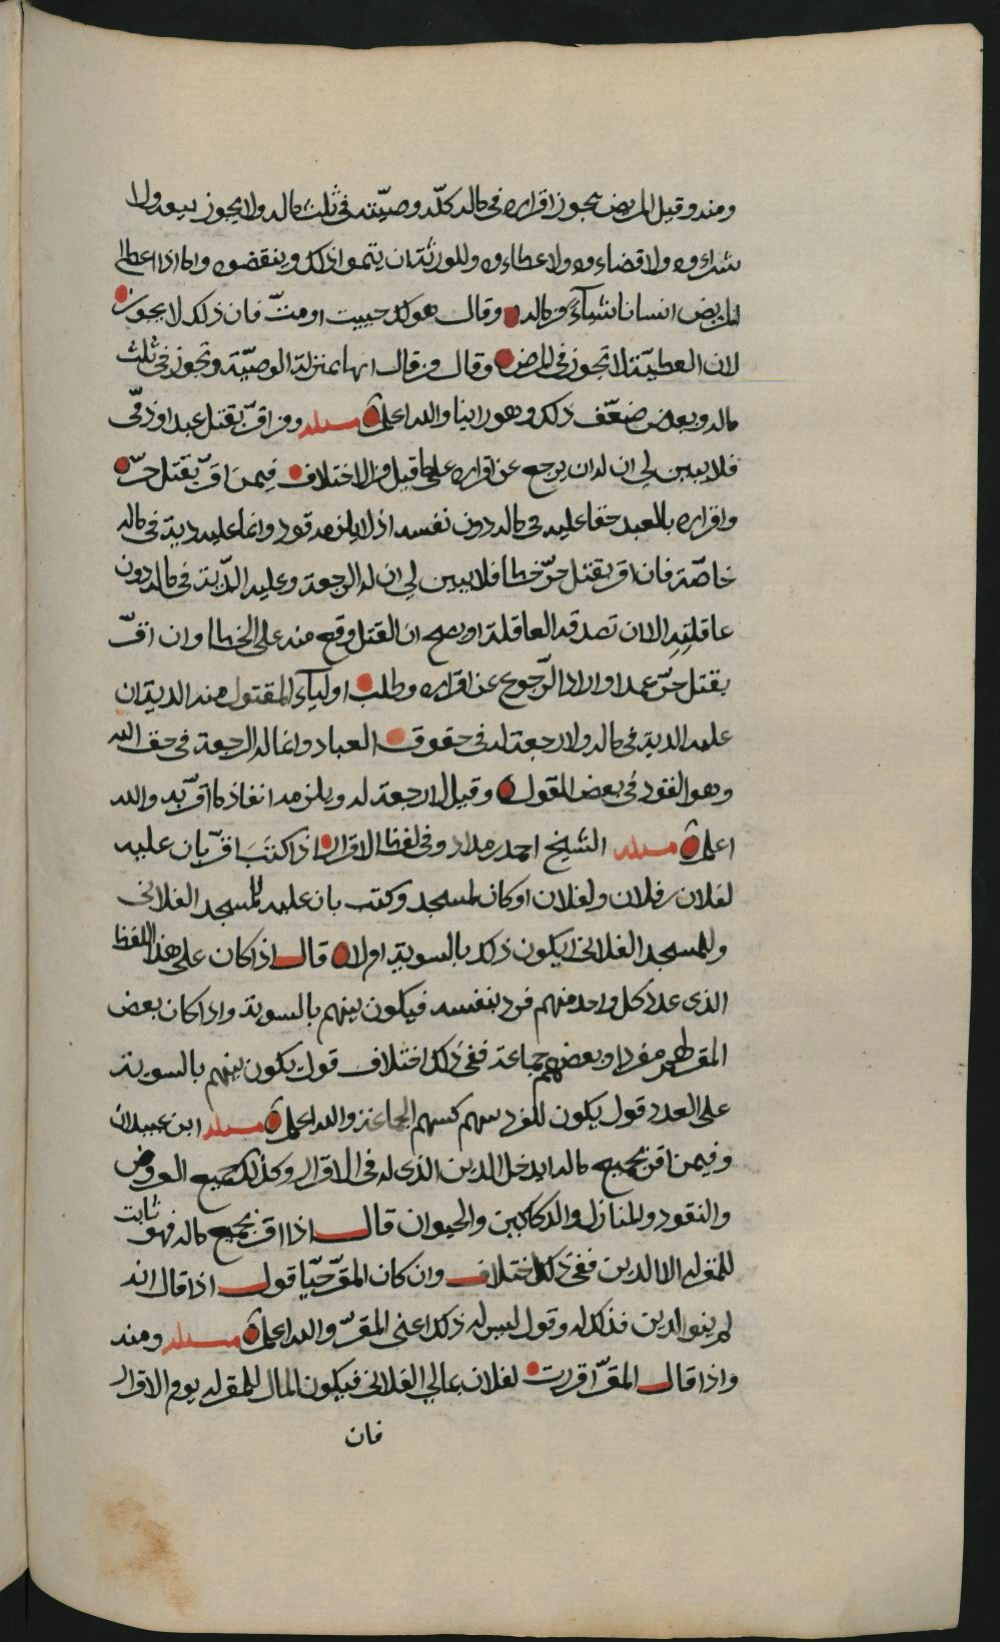 ومنه وقيل المريض يجوز اقراره في ماله كله وصيّته في ثلث ماله ولا يجوز بيعه ولا
شراءوه ولا قضاءوه ولا عطاءوه وللورثة ان يتموا ذلك وينقضوه واما اذا اعطا
المريض انسانا شيأ من ماله وقال هو لك حييت او متّ فان ذلك لا يجوز
لان العطيّة لا تجوز في المرض وقال من قال انها بمنزلة الوصيّة وتجوز في ثلث
ماله وبعض ضعّف ذلك وهو راينا والله اعلم مسئله ومن اقرّ بقتل عبد او ذمّى
فلا يبين لي ان له ان يرجع عن اقراره على ما قيل من الاختلاف فيمن اقرّ بقتل حرّ
واقراره بالعبد حقا عليه في ماله دون نفسه اذ لا يلزمه قود وانما عليه دية في ماله
خاصّة فان اقر بقتل حرّ خطا فلا يبين لي ان له الرجعة وعليه الدّية في ماله دون
عاقلتِهِ الا ان تصدقه العاقلة او يصح ان القتل وقع منه على الخطا وان اقرّ
بقتل حرّ عمدا واراد الرّجوع عن اقراره وطلب اولياء المقتول منه الدية ان
عليه الدية في ماله ولا رجعة له في حقوق العباد وانما له الرجعة في حق الله
وهو القود في بعض القول وقيل لا رجعة له ويلزمه انفاذ ما اقرّ به والله
اعلم مسئله الشيخ احمد بن مداد وفي لفظ الاقرار اذا كتبَ اقرّ بان عليه
لفلان بن فلان ولفلان او كان لمسجد وكتب بان عليه للمسجد الفلانى
وللمسجد الفلانى ايكون ذلك بالسوية ام لا قال اذا كان على هذا اللفظ
الذى عدد كل واحد منهم فرد بنفسه فيكون بينهم بالسوية واذا كان بعض
المقر لهم مفردا وبعضهم جماعة ففى ذلك اختلاف قول يكون بينهم بالسوية
على العدد قول يكون للفرد سهم كسهم الجماعة والله اعلم مسئله ابن عبيدان
وفيمن اقر بجميع ماله ايدخل الدين الذى له في الاقرار وكذلك جميع العروض
والنقود والمنازل والدكاكين والحيوان قال اذا اقر بجميع ماله فهو ثابت
للمقر له الا الدين ففى ذلك اختلاف وان كان المقرّ حيّا قول اذا قال انه
لم ينو الدين فذلك له وقول ليس له ذلك اعنى المقرّ والله اعلم مسئله ومنه
واذا قال المقرّ اقررت لفلان بمالي الفلانى فيكون المال للمقر له يوم الاقرار
فان